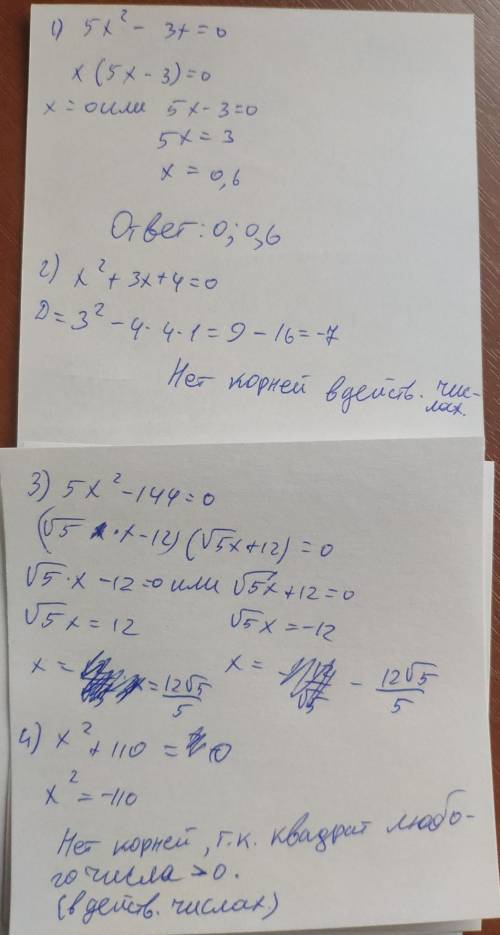 1) 5x² - 3x = 0
x(5x - 3) = 0
x = 0 или 5x - 3 = 0
5x = 3
x = 0,6
Ответ: 0; 0,6
2) x² + 3x + 4 = 0
D = 3² - 4·4·1 = 9 - 16 = -7
Нет корней в действ. чис-
лах.
3) 5x² - 144 = 0
(√5 · x - 12)(√5x + 12) = 0
√5 · x - 12 = 0 или √5x + 12 = 0
√5x = 12 √5x = -12
x = = 12√5/5 x = - 12√5/5
4) x² + 110 = 0
x² = -110
Нет корней, т.к. квадрат любо-
го числа > 0.
(в действ. числах)